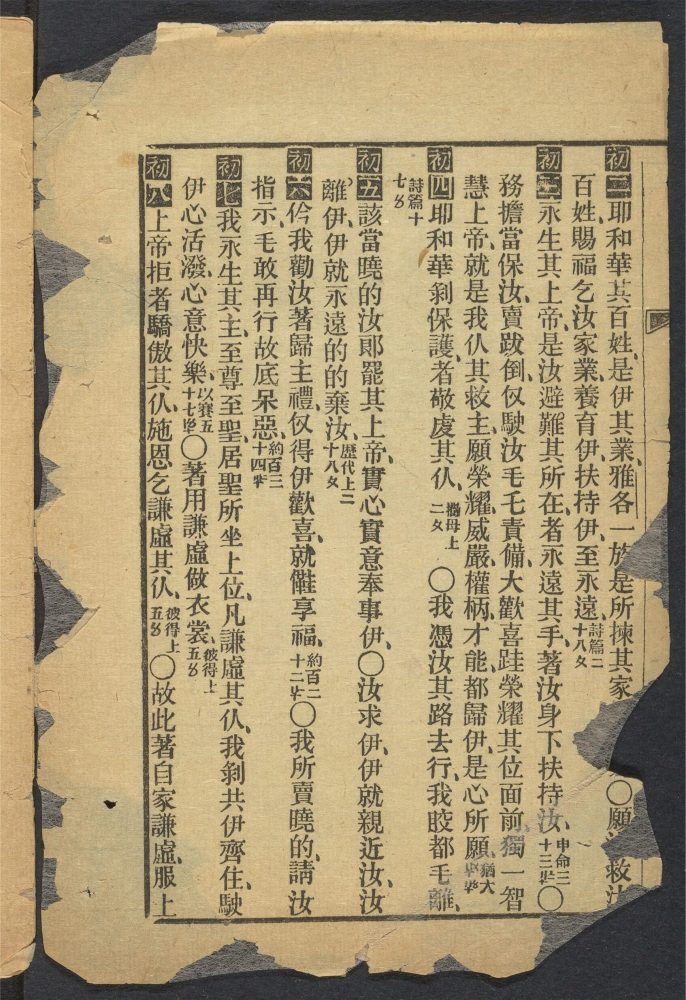 初二耶和華其百姓、是伊其業、雅各一族是所揀其家 〇願 救汝
百姓、賜福乞汝家業、養育伊、扶持伊、至永遠、詩篇二十八〤
初三永生其上帝、是汝避難其所在、者永遠其手、著汝身下扶持汝、申命三十三〇
務擔當保汝、賣跋倒、仅駛汝毛乇責備、大歡喜跬榮耀其位面前、獨一智
慧上帝、就是我仈其救主、願榮耀威嚴權柄才能都歸伊、是心所願、猶大
初四耶和華剝保護者敬虔其仈、撒母上二〤 〇我憑汝其路去行、我跤都毛離、
詩篇十七〥
初五該當曉的汝郎罷其上帝、實心實意奉事伊、〇汝求伊、伊就親近汝、汝
離伊、伊就永遠的的棄汝、歷代上二十八〤
初六仱我勸汝著歸主禮、仅得伊歡喜、就儺享福、約百二十二〇我所賣曉的、請汝
指示、毛敢再行故底呆惡、約百三十四
初七我永生其主、至尊至聖、居聖所坐上位、凡謙虛其仈、我剝共伊齊住、駛
伊心活潑、心意快樂、以賽五十七〇著用謙虛做衣裳、彼得上五〥
初八上帝拒者驕傲其仈、施恩乞謙虛其仈、彼得上五〥〇故此著自家謙虛、服上